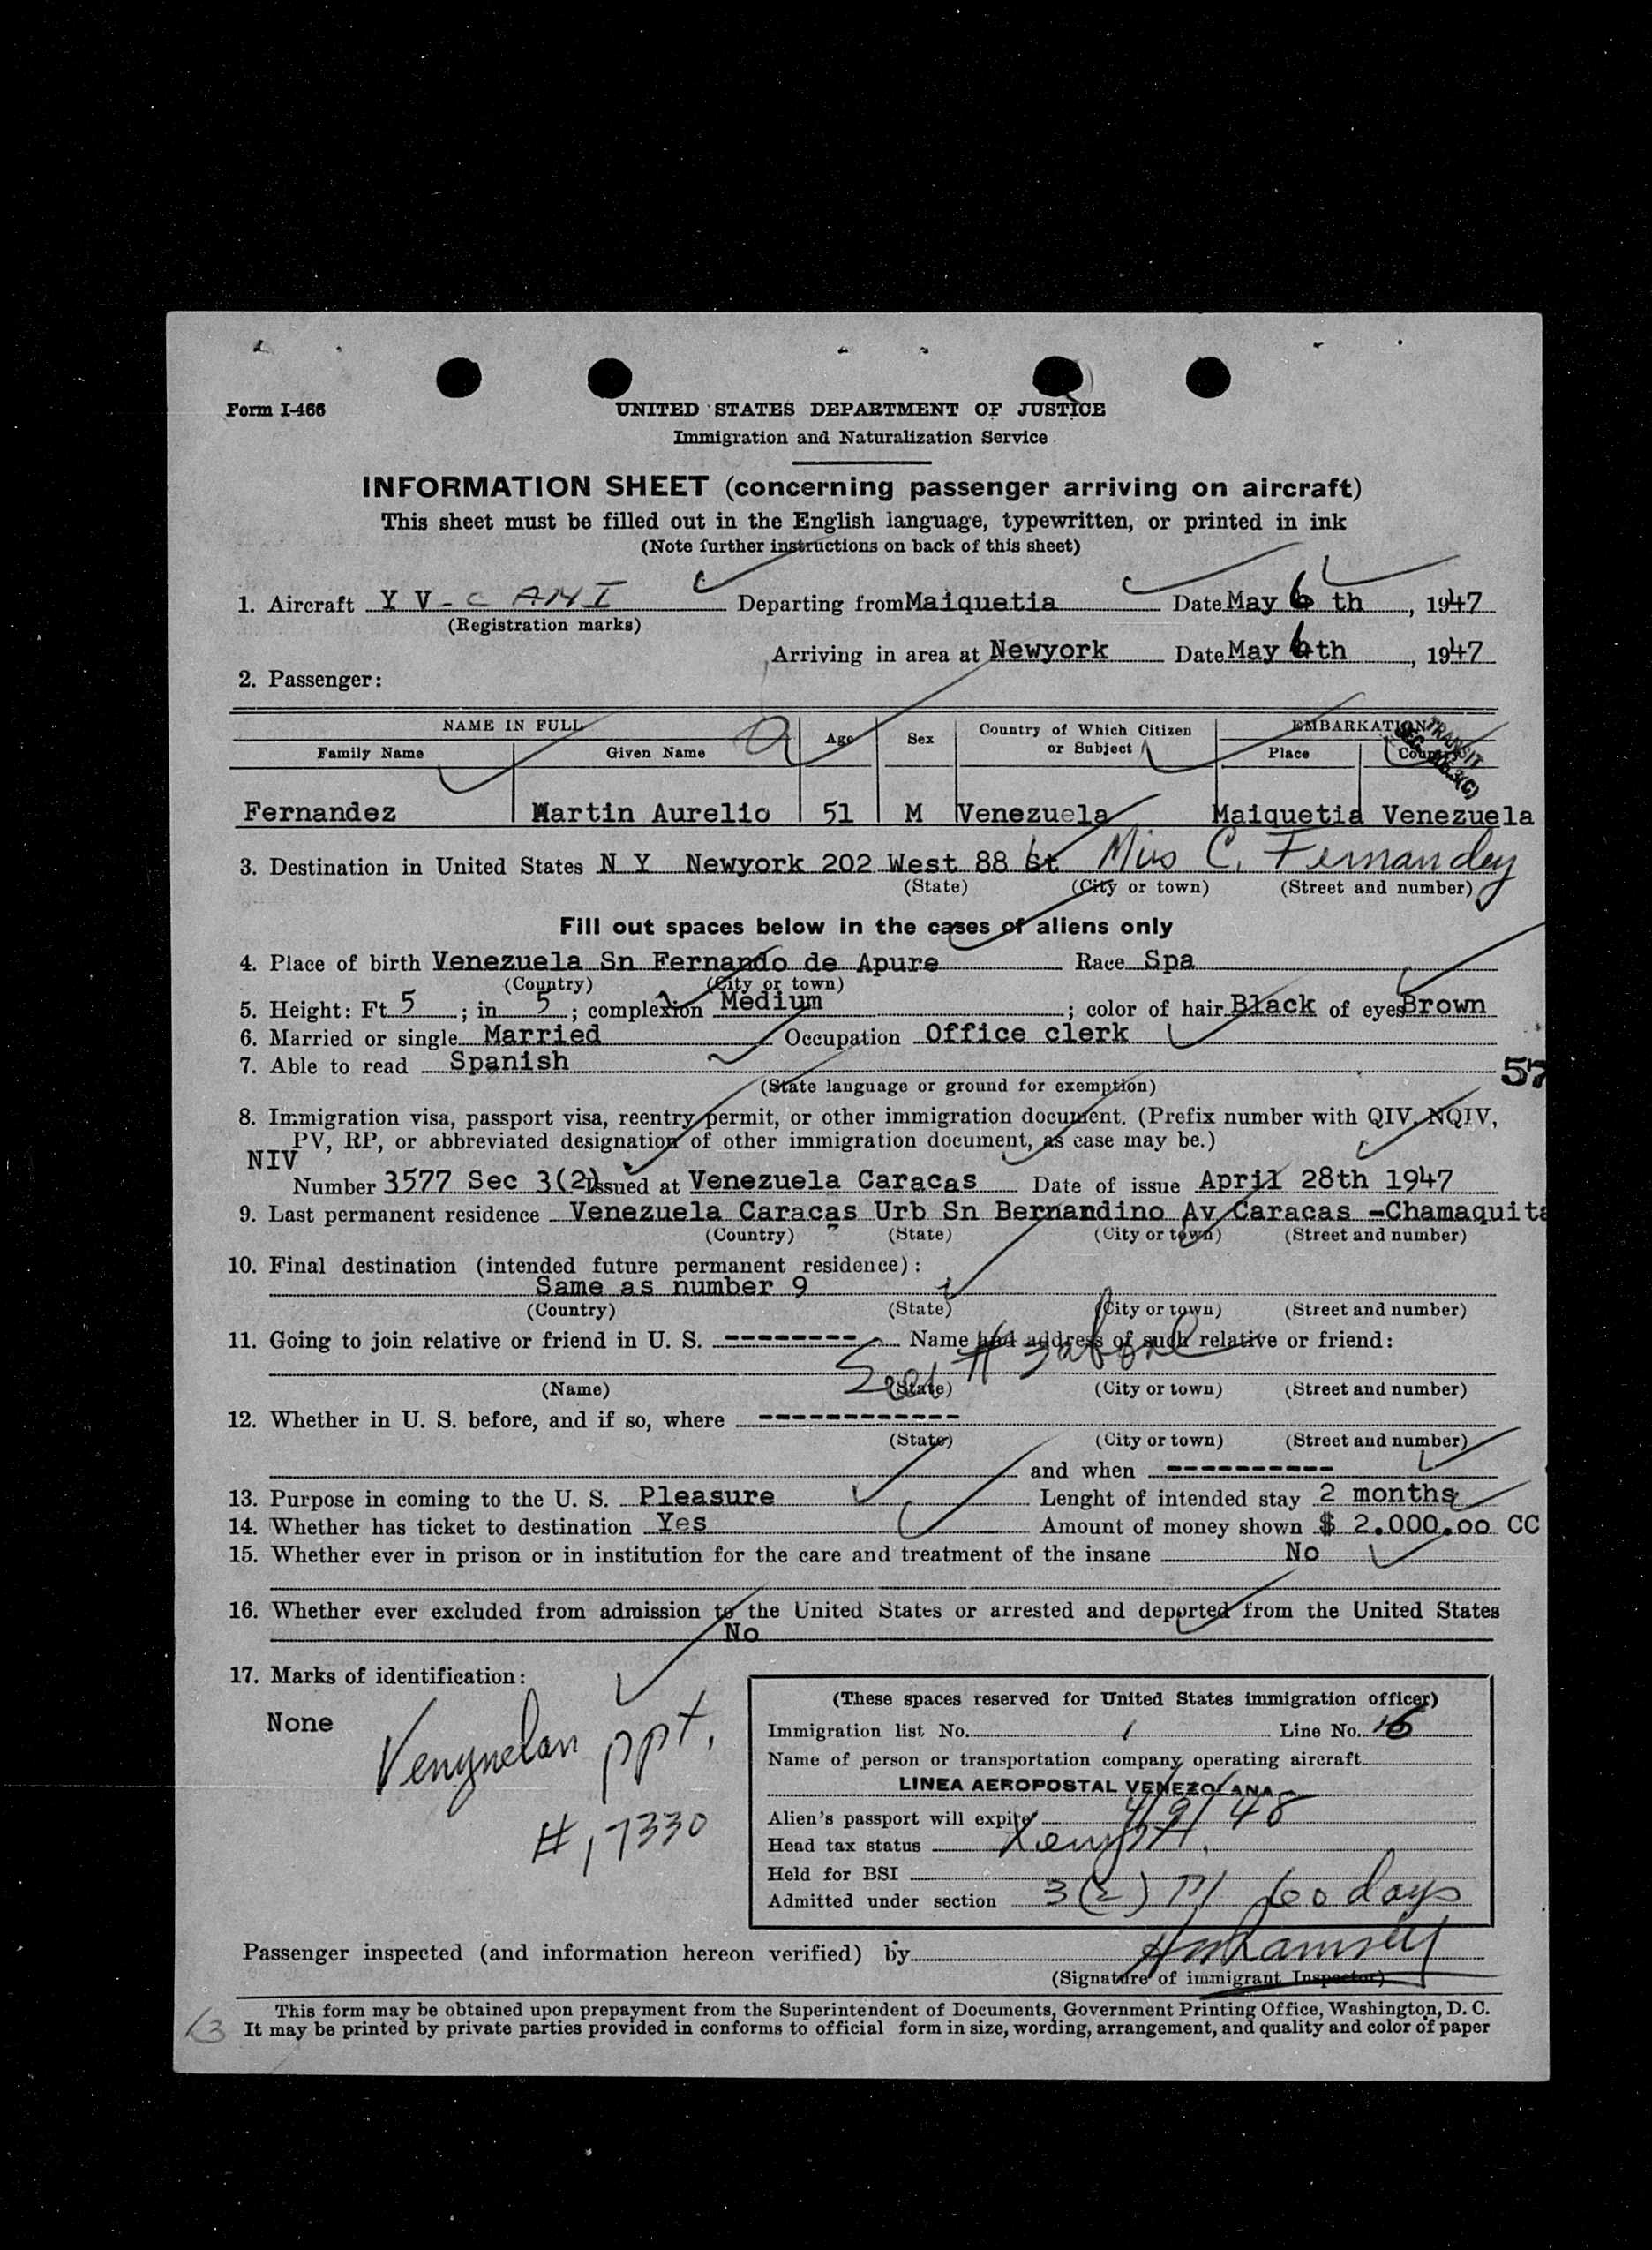 Form I-466
UNITED STATES DEPARTMENT OF JUSTICE
Immigration and Naturalization Service
INFORMATION SHEET (concerning passenger arriving on aircraft)
This sheet must be filled out in the English language, typewritten, or printed in ink
(Note further instructions on back of this sheet)
1. Aircraft Y V - C AMI Departing from Maiquetia Date May 6 th, 1947
(Registration marks)
Arriving in area at Newyork Date May 6th, 1947
2. Passenger:
NAME IN FULL Age Sex Country of Which Citizen or Subject EMBARKATION
Family Name Given Name Place Country
TRANSIT
Fernandez Martin Aurelio 51 M Venezuela Maiquetia Venezuela
3. Destination in United States N Y Newyork 202 West 88 St Miss C. Fernandez
(State) (City or town) (Street and number)
Fill out spaces below in the cases of aliens only
4. Place of birth Venezuela Sn Fernando de Apure Race Spa
(Country) (City or town)
5. Height: Ft 5 ; in 5 ; complexion Medium ; color of hair Black of eyes Brown
6. Married or single Married Occupation Office clerk
7. Able to read Spanish
57
(State language or ground for exemption)
8. Immigration visa, passport visa, reentry permit, or other immigration document. (Prefix number with QIV, NQIV,
PV, RP, or abbreviated designation of other immigration document, as case may be.)
NIV
Number 3577 Sec 3(2) Issued at Venezuela Caracas Date of issue April 28th 1947
9. Last permanent residence Venezuela Caracas Urb Sn Bernandino Av Caracas -Chamaquita
(Country) (State) (City or town) (Street and number)
10. Final destination (intended future permanent residence):
Same as number 9
(Country) (State) (City or town) (Street and number)
11. Going to join relative or friend in U. S. --------- Name and address of such relative or friend:
See # 3 above
(Name) (State) (City or town) (Street and number)
12. Whether in U. S. before, and if so, where ------------
(State) (City or town) (Street and number)
and when ----------
13. Purpose in coming to the U. S. Pleasure Lenght of intended stay 2 months
14. Whether has ticket to destination Yes Amount of money shown $ 2.000.oo CC
15. Whether ever in prison or in institution for the care and treatment of the insane No
16. Whether ever excluded from admission to the United States or arrested and deported from the United States
No
17. Marks of identification:
None
Venezuelan ppt.
# 17330
(These spaces reserved for United States immigration officer)
Immigration list No. 1 Line No. 16
Name of person or transportation company operating aircraft
LINEA AEROPOSTAL VENEZOLANA
Alien's passport will expire 4/9/48
Head tax status
Held for BSI
Admitted under section 3(2) 60 days
Passenger inspected (and information hereon verified) by
(Signature of immigrant Inspector)
This form may be obtained upon prepayment from the Superintendent of Documents, Government Printing Office, Washington, D. C.
13 It may be printed by private parties provided in conforms to official form in size, wording, arrangement, and quality and color of paper